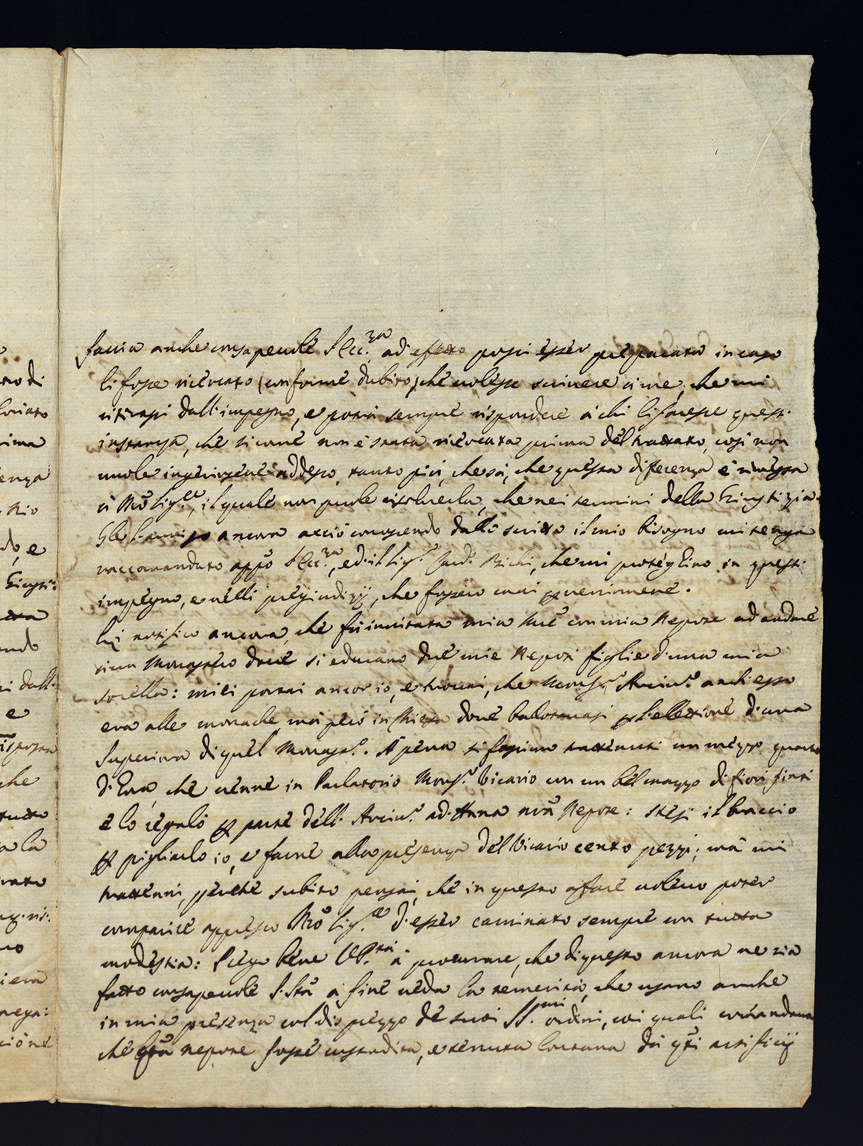 faccia anche consapevole S. Ecc.za ad effetto possi esser preparata in caso
li fosse ricercato (conforme dubito) che volesse scrivere à me, che mi
ritirassi dall'impegno, e potrà sempre rispondere à chi li facesse quest'
instanza, che sicome non è stata ricercata prima del trattato, così non
vuole ingerirsene addesso, tanto più, che sà, che questa diferenza è rimessa
à Nro Sig.re, il quale non puole risolverla, che nei termini della Giustizia.
ancora acciò conoscendo dallo scritto il mio bisogno mi tenga
raccomandato appo S. Ecc.za, ed il Sig.r Card. Bichi, che mi proteghino in quest'
impegno, e nelli pregiudizij, che fossero mai per venirmene.
Li notifico ancora, che fù invitata mia Mre con mia Nepote ad andare
in un Monastero dove si educano due mie Neposi figlie d'una mia
sorella: mi ci portai ancor io, e trovai, che Mons.r Arciv.o anch'esso
era alle monache mà però in Chiesa dove ballottavasi per l'elezzione d'una
Superiora di quel Monast.o. Apena si fossimo trattenuti un mezzo quarto
d'Ora, che venne in Parlatorio Mons.r Vicario con un bel mazzo di fiori finti
e lo regalò per parte dell'Arciv.o ad Anna mia Nepote: stesi il braccio
per pigliarlo io, e farne alla presenza del Vicario cento pezzi; mà mi
trattenni, perche subito pensai, che in questo affare volevo poter
comparire appresso Nro Sig.re d'esser caminato sempre con tutta
modestia: Prego bene V. P.tà à procurare, che di questo ancora ne sia
fatto consapevole S. Stà à fine veda la temerità, che usano anche
in mia presenza col disprezzo de suoi SS.mi ordini, coi quali comandava
che qta nepote fosse custodita, e tenuta lontana da qti artificij